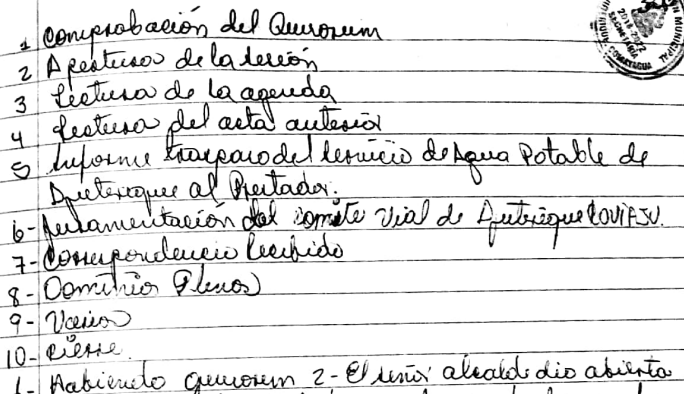 1 Comprobación del Quuorum
2 Apertura de la sesión
3 Lectura de la agenda
4 Lectura del acta anterior
5 Informe traspaso del servicio de Agua Potable de
Ajuterique al Prestador.
6- Juramentación del comite Vial de Ajuterique COVIAJU.
7- Correspondencia Recibida
8- Dominios Plenos
9- Varios
10- Cierre.
1- Habiendo Quuorum 2- El señor alcalde dio abierta
SECRETARIA
2018-2022
COMAYAGUA